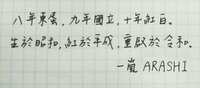 八年東蛋,九年國立,十年紅白。
生於昭和,紅於平成,重啟於令和。
一嵐 ARASHI